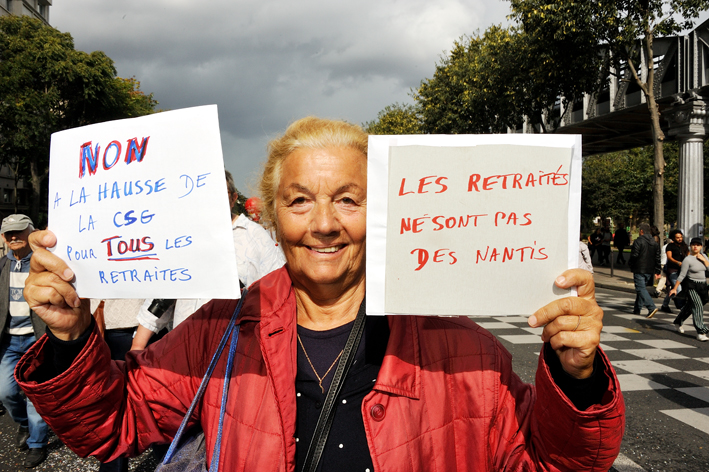 NON
A LA HAUSSE DE
LA CSG
POUR TOUS LES
RETRAITES
LES RETRAITÉS
NE SONT PAS
DES NANTIS